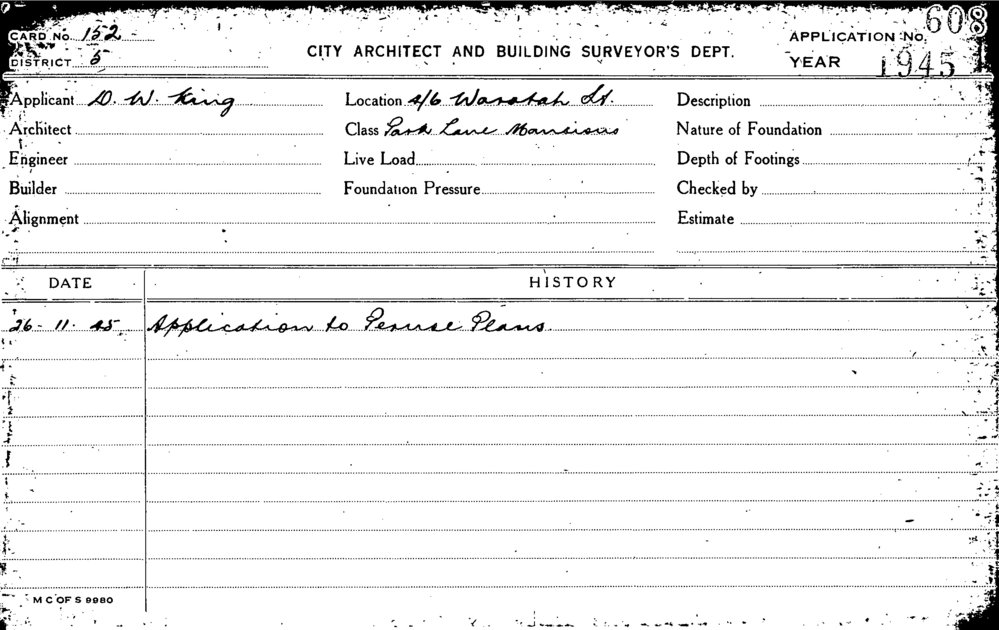 CARD No. 152
APPLICATION No. 608
DISTRICT 5
CITY ARCHITECT AND BUILDING SURVEYOR'S DEPT.
YEAR 1945
Applicant D. W. King Location 4/6 Waratah St. Description
Architect Class Park Lane Mansions Nature of Foundation
Engineer Live Load Depth of Footings
Builder Foundation Pressure Checked by
Alignment Estimate
DATE HISTORY
26-11-45 Application to Peruse Plans.
M C OF S 9980